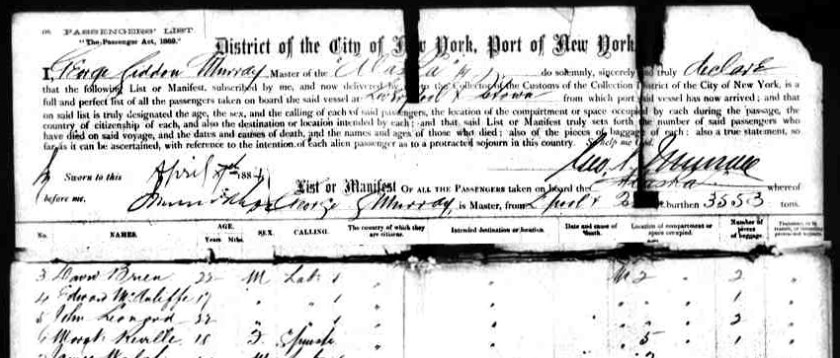 PASSENGERS' LIST
"The Passenger Act, 1882."
District of the City of New York, Port of New York
I, George Siddon Murray Master of the "Alaska" do solemnly, sincerely and truly declare
that the following List or Manifest, subscribed by me, and now delivered by to the Collector of the Customs of the Collection District of the City of New York, is a
full and perfect list of all the passengers taken on board the said vessel at Liverpool & from which port said vessel has now arrived; and that
on said list is truly designated the age, the sex, and the calling of each of said passengers, the location of the compartment or space occupied by each during the passage, the
country of citizenship of each, and also the destination or location intended by each; and that said List or Manifest truly sets forth the number of said passengers who
have died on said voyage, and the dates and causes of death, and the names and ages of those who died; also of the pieces of baggage of each; also a true statement, so
far as it can be ascertained, with reference to the intention of each alien passenger as to a protracted sojourn in this country. So help me God.
Geo. S. Murray
Sworn to this April 188
before me.
List or Manifest OF ALL THE PASSENGERS taken on board the Alaska whereof
George S Murray, is Master, from L'pool & burthen 3553 tons.
No. NAMES. AGE. Years Mths. SEX. CALLING. The country of which they are citizens. Intended destination or location. Date and cause of death. Location of compartment or space occupied. Number of pieces of baggage.
3 David Brien 22 M Lab 1 " " No 2 2
4 Edward McAuliffe 19 " " 1 " " " 1
5 John Leonard 22 " " 1 " " " 2
6 Margt Neville 18 F Spinster " " 5 1
7 James M